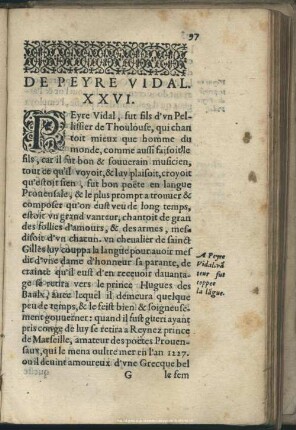 97
DE PEYRE VIDAL.
XXVI.
PEyre Vidal, fut fils d'vn Pel-
lissier de Thoulouse, qui chan
toit mieux que homme du
monde, comme aussi faisoit le
fils, car il fut bon & souuerain musicien,
tout ce qu'il voyoit, & luy plaisoit, croyoit
qu'estoit sien, fut bon poëte en langue
Prouensale, & le plus prompt a trouuer &
composer qu'on eust veu de long temps,
estoit vn grand vanteur, chantoit de gran
des follies d'amours, & des armes, mes
disoit d'vn chacun. vn cheualier de sainct
Gilles luy couppa la langue pour auoir mes
dit d'vne dame d'honneur sa parante, de
crainte qu'il eust d'en receuoir dauanta-
ge se retira vers le prince Hugues des
Baulx, auec lequel il demeura quelque
peu de temps, & le feist bien & soigneuse-
ment gouuerner: quand il fust guery ayant
pris conge de luy se retira a Reynez prince
de Marseille, amateur des poëtes Prouen-
saux, qui le mena oultre mer en l'an 1227.
ou il deuint amoureux d'vne Grecque bel
G le sem
A Peyre
Vidal
teur fut
coppee
la lãgue.